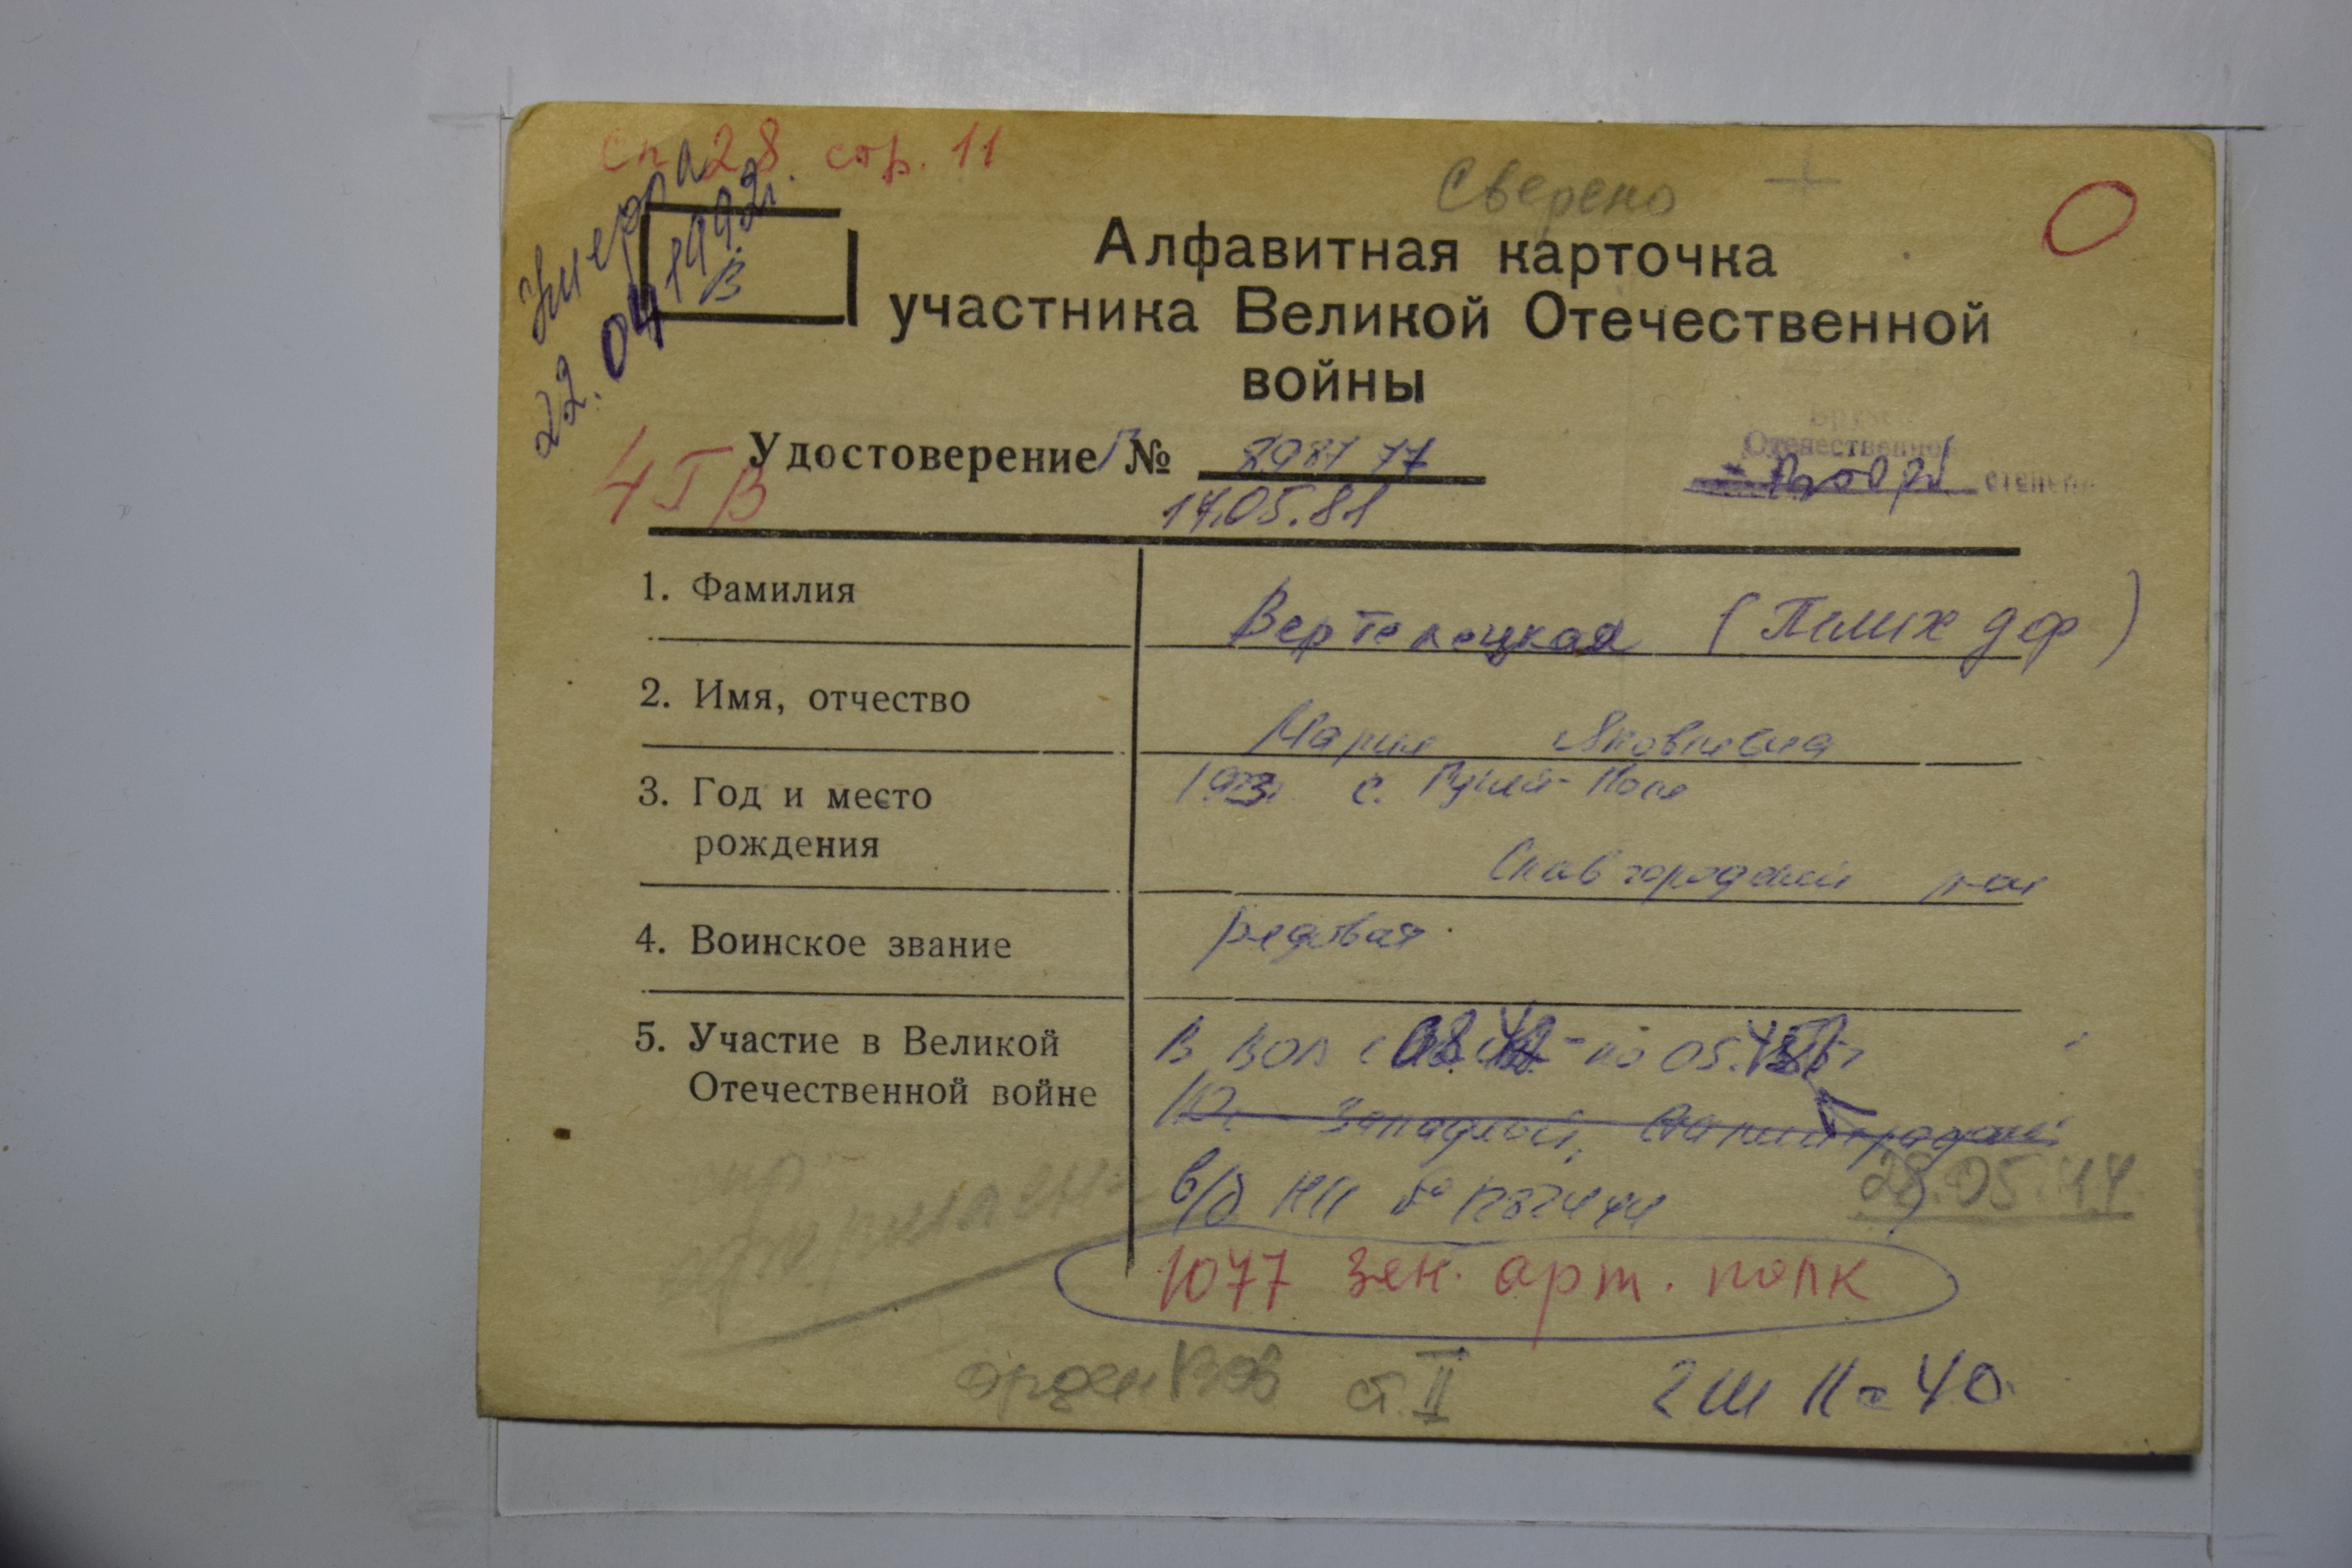 сп 28 стр. 11
Умерла
22.04 1992г.
В
Сверено
Алфавитная карточка
участника Великой Отечественной
войны
Удостоверение №
17.05.81
4 Г В
Отечественной
степени
1. Фамилия
Вертелецкая (Пелих дф)
2. Имя, отчество
Мария Яковлевна
3. Год и место
рождения
1923г с. Гуляй-Поле
Славгородский р-н
4. Воинское звание
рядовая
5. Участие в Великой
Отечественной войне
В ВОВ с 08.42 - по 05.45г
Юг Западный, Сталинградский
в/б НП №
28.05.44
1077 зен. арт. полк
орден ВОВ ст. II